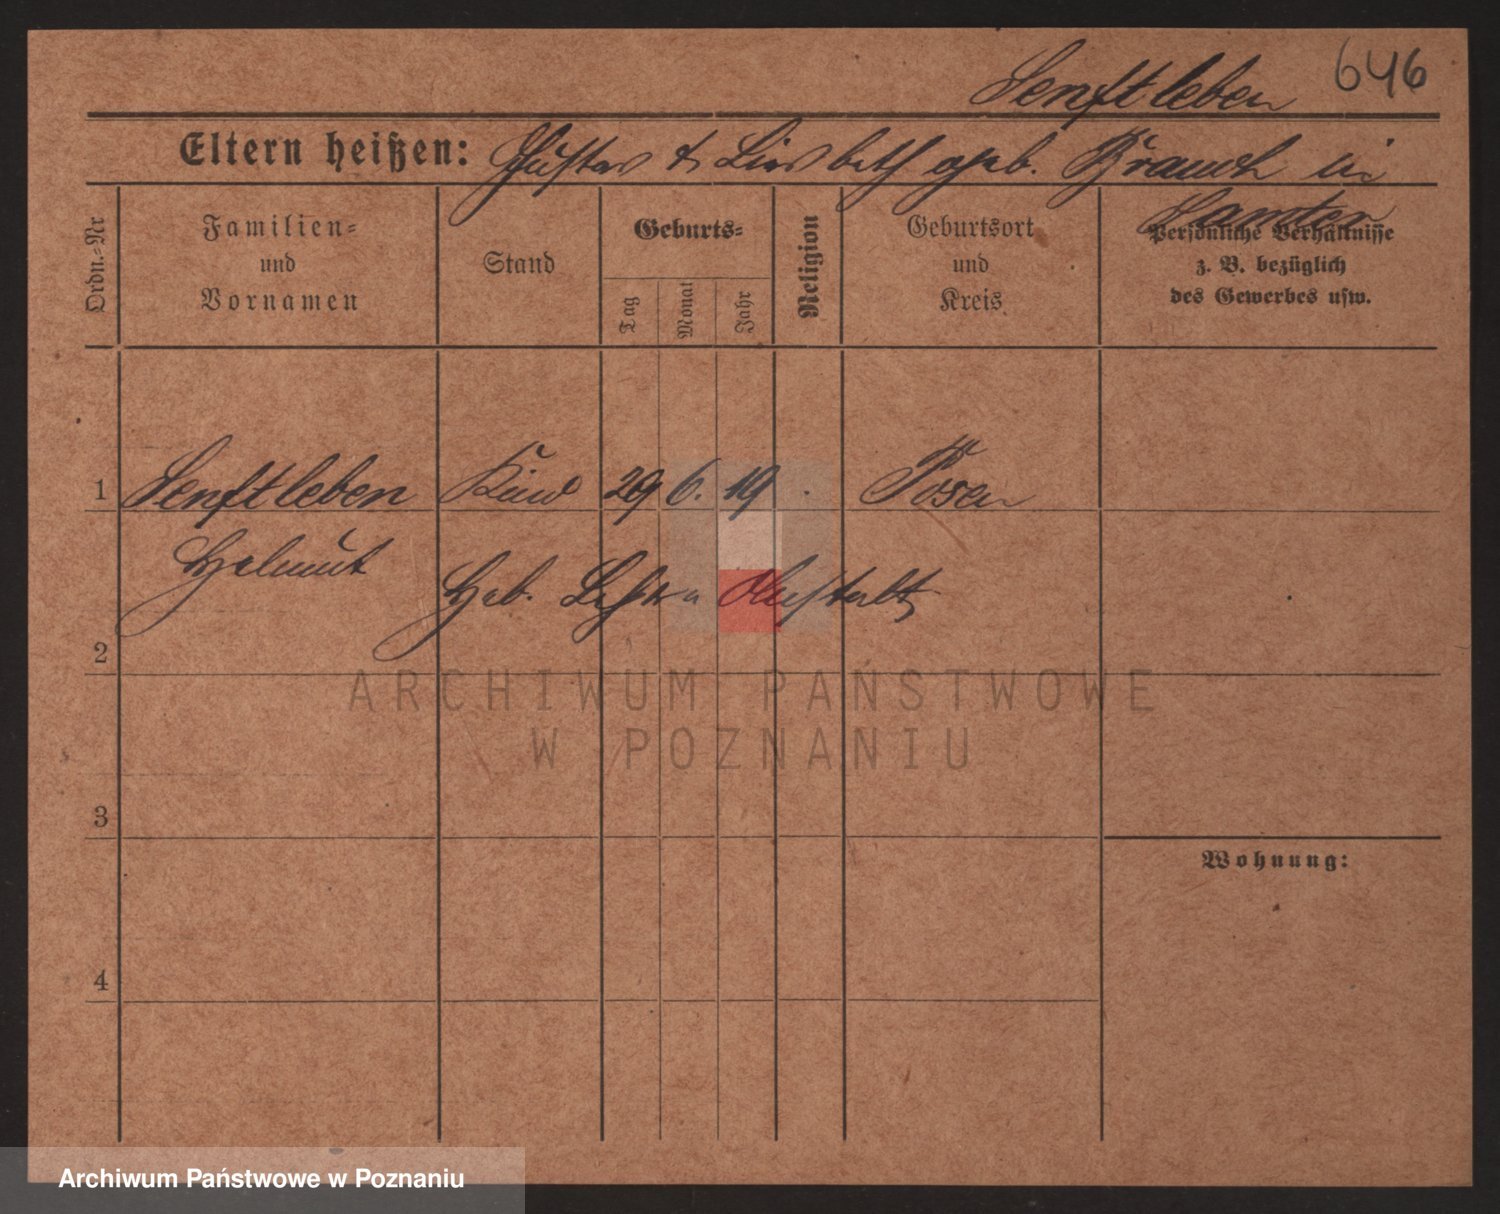 646
Senftleben
Eltern heißen: Gustav & Lisbeth geb. Brauch in
Samter
Ordn.-Nr
Familien-
und
Vornamen
Stand
Geburts-
Tag
Monat
Jahr
Religion
Geburtsort
und
Kreis
Persönliche Verhältnisse
z. B. bezüglich
des Gewerbes usw.
1 Senftleben Kind 29 6. 19. Posen
Helmut
Heb.
2
ARCHIWUM PAŃSTWOWE
W POZNANIU
3
Wohnung:
4
Archiwum Państwowe w Poznaniu